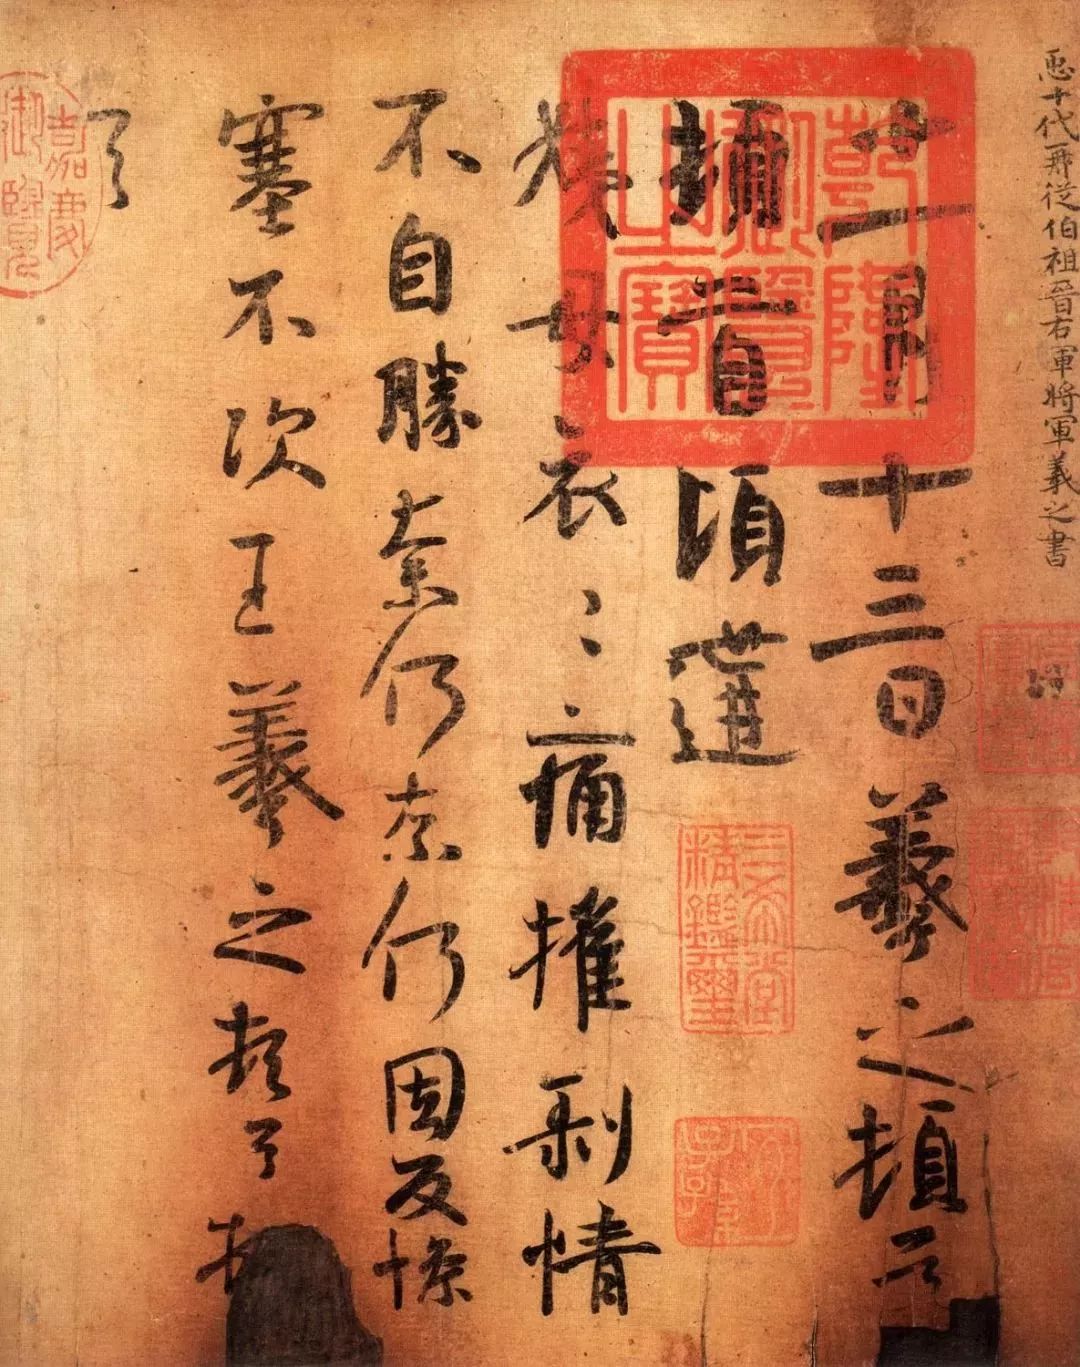 臣十代再從伯祖晉右軍將軍羲之書
十一月十三日羲之頓首
頓首頃遘
姨母哀〻痛摧剝情
不自勝奈何奈何因反慘
塞不次王羲之頓首頓
首
乾隆
御覽
之寶
三希堂
精鑑璽
宜子孫
嘉慶
御覽